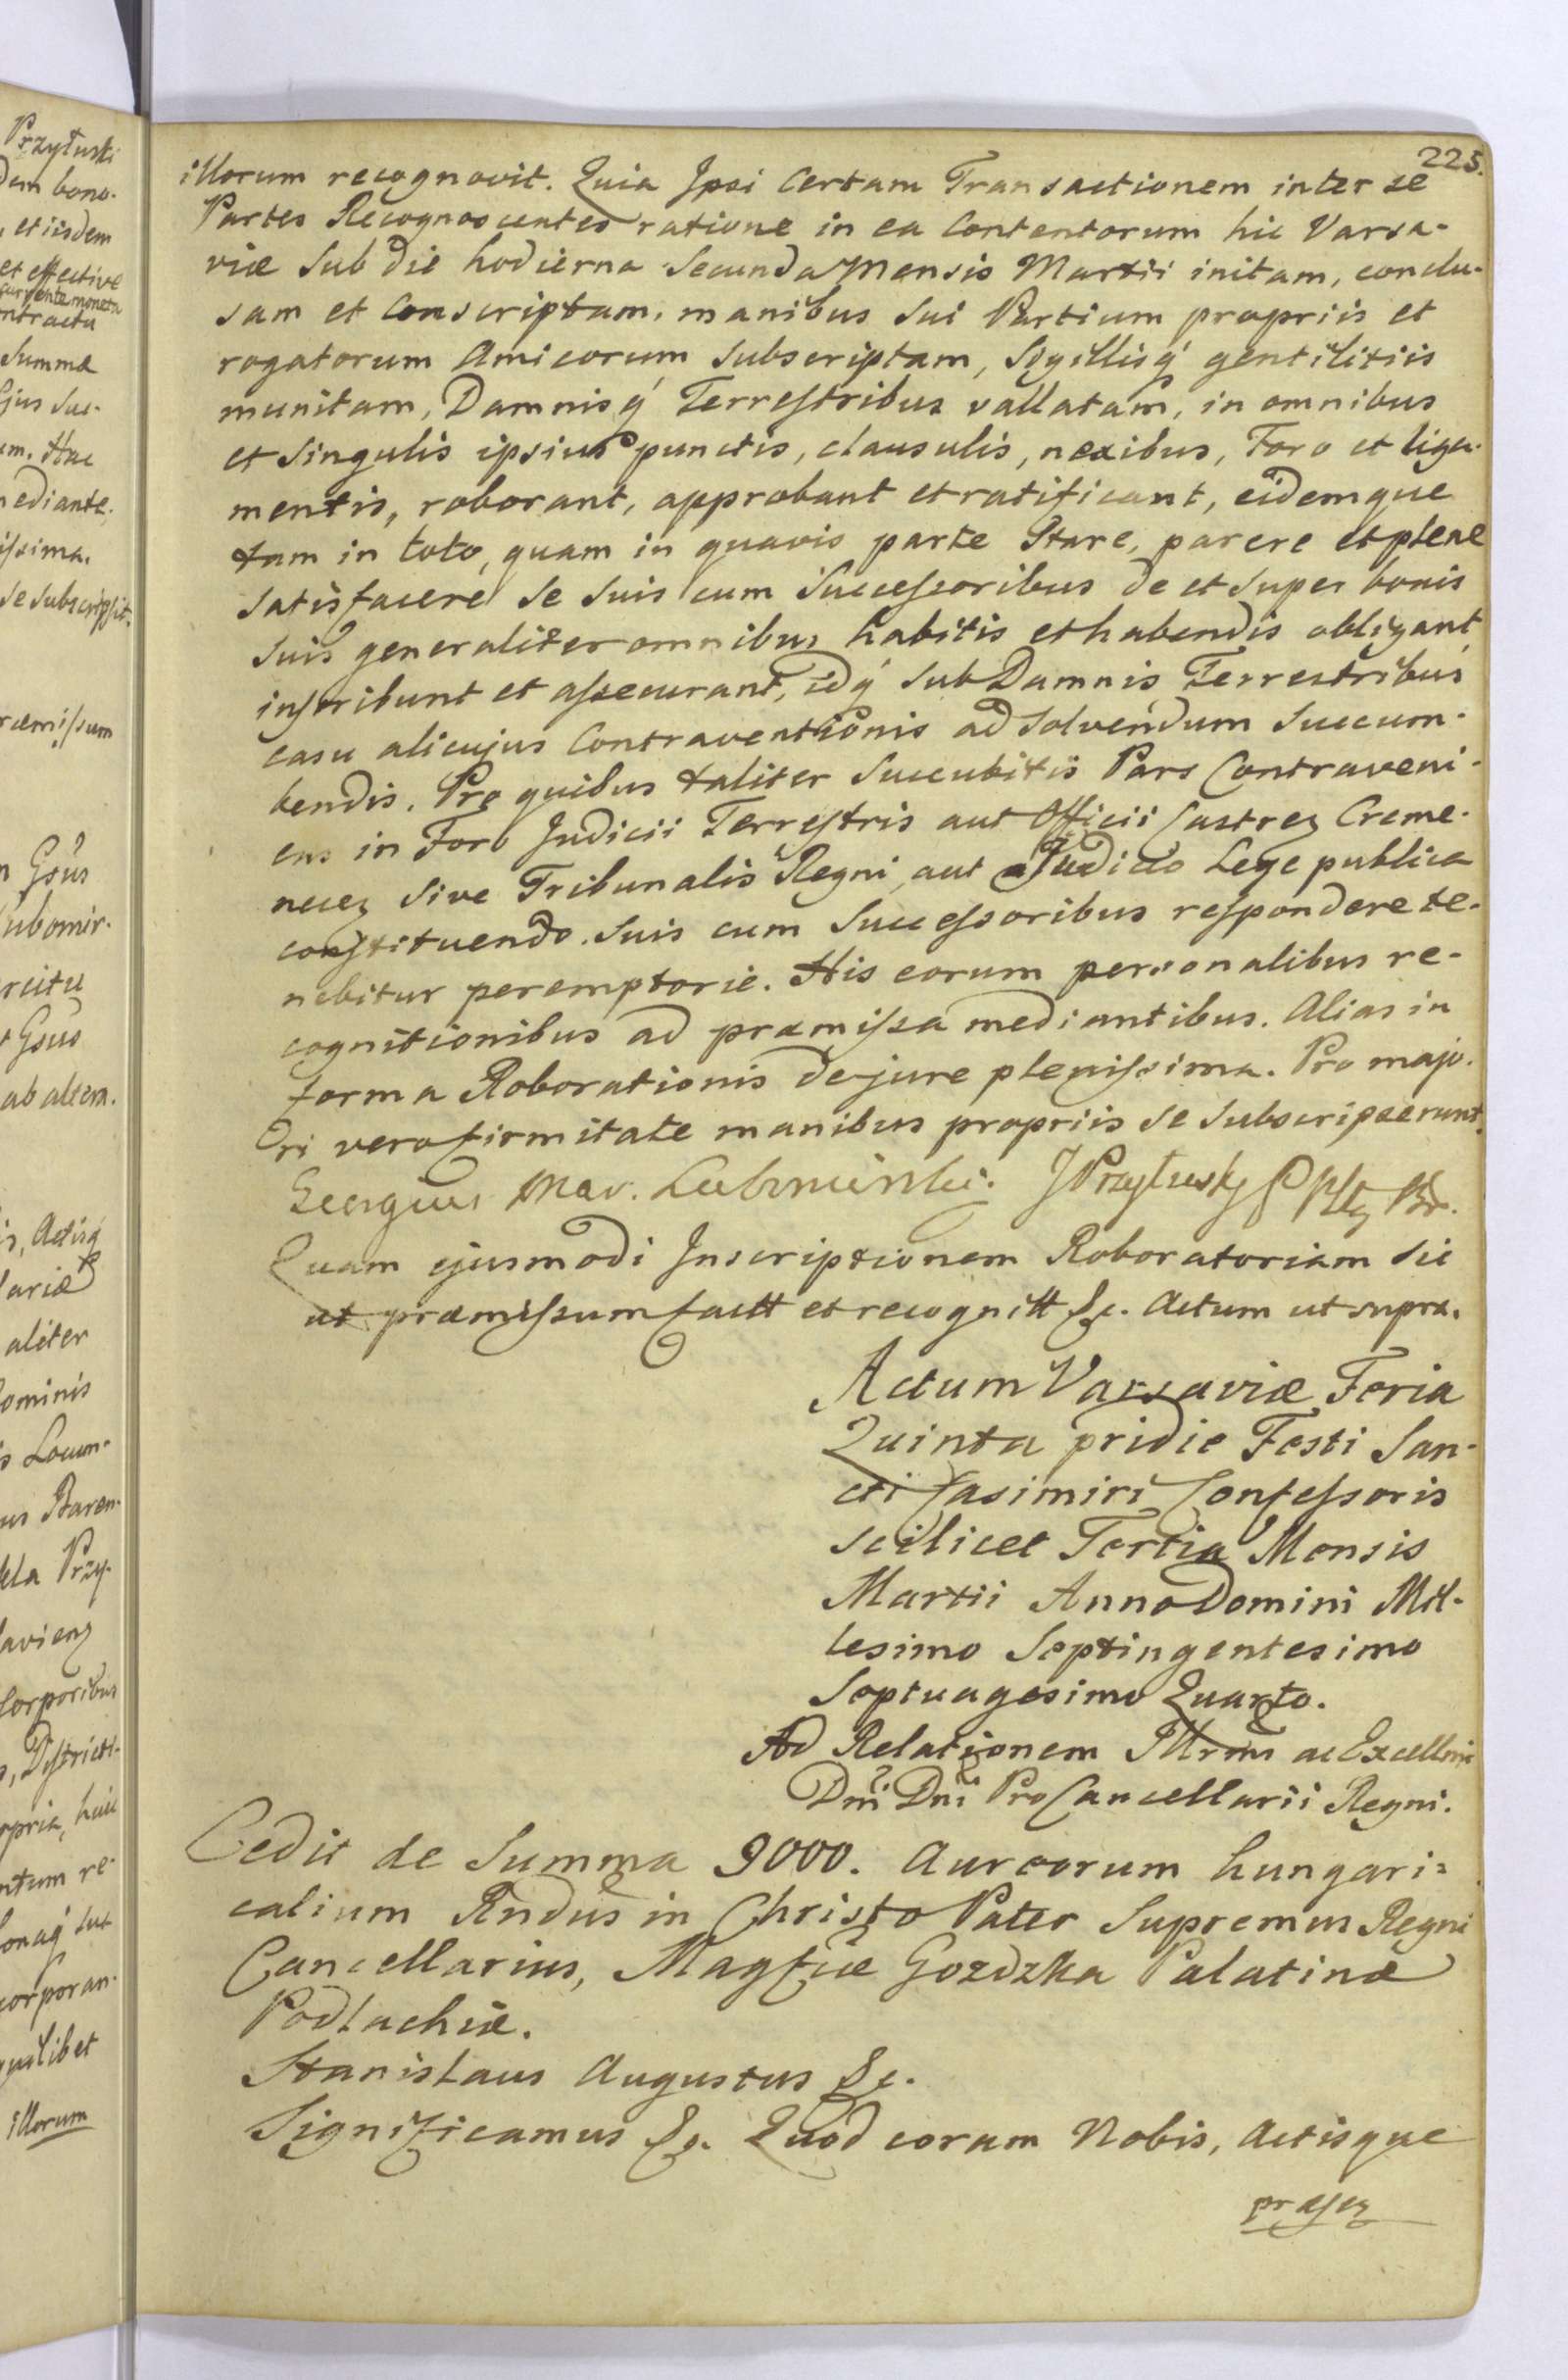 Przyłuski
dem bono-
et iisdem
et effective
currente moneta
ntractu
Summæ
Ejus Suc-
em. Hac
mediante
issima.
se subscripsit.
ræmissum
Gsus
ubomir-
rcitu
Gsus
ab altera.
is, Actisq́
lariæ
aliter
Dominis
is Locum-
us Staren-
lela Przy-
lavien
Corporibus
s, Districti-
opria, huic
ntum re-
onaq́ tut
corporan-
qualibet
illorum
225.
illorum recognovit. Quia Ipsi Certam Transactionem inter se
Partes Recognoscentes ratione in ea Contentorum hic Varsa-
viæ Sub die hodierna Secunda Mensis Martii initam, conclu-
sam et Conscriptam, manibus Sui Partium propriis et
rogatorum Amicorum Subscriptam, Sygillisq́ gentilitiis
munitam, Damnisq́ Terrestribus vallatam, in omnibus
et Singulis ipsius punctis, clausulis, nexibus, Foro et liga-
mentis, roborant, approbant et ratificant, eidemque
tam in toto, quam in quavis parte Stare, parere et plene
Satisfacere Se Suis cum Successoribus de et Super bonis
Suis generaliter omnibus habitis et habendis obligant
inscribunt et assecurant, idq́ Sub Damnis Terrestribus
casu alicujus Contraventionis ad Solvendum Succum-
bendis. Pro quibus taliter Succubitis Pars Contraveni-
ens in Foro Judicii Terrestris aut Officii Castren Creme-
necen Sive Tribunalis Regni, aut Judicio Lege publica
constituendo. Suis cum Successoribus respondere te-
nebitur peremptorie. His eorum personalibus re-
cognitionibus ad præmissa mediantibus. Alias in
forma Roborationis de jure plenissima. Pro majo-
ri vero firmitate manibus propriis Se Subscripserunt.
Georgius Mar. Lubomirski. J Przyłusky
Quam ejusmodi Inscriptionem Roboratoriam Sic
ut præmissum factt et recognitt &c. Actum ut supra.
Actum Varsaviæ Feria
Quinta pridie Festi San-
cti Casimiri Confessoris
scilicet Tertia Mensis
Martii Anno Domini Mil-
lesimo Septingentesimo
Septuagesimo Quarto.
Ad Relationem Illrmi ac Excellmi
Dni Dni ProCancellarii Regni.
Cedit de Summa 9000. Aureorum hungari=
calium Rndus in Christo Pater Supremus Regni
Cancellarius, Magfcæ Gozdzka Palatinæ
Podlachiæ.
Stanislaus Augustus &c.
Significamus &c. Quod coram Nobis, Actisque
præsen